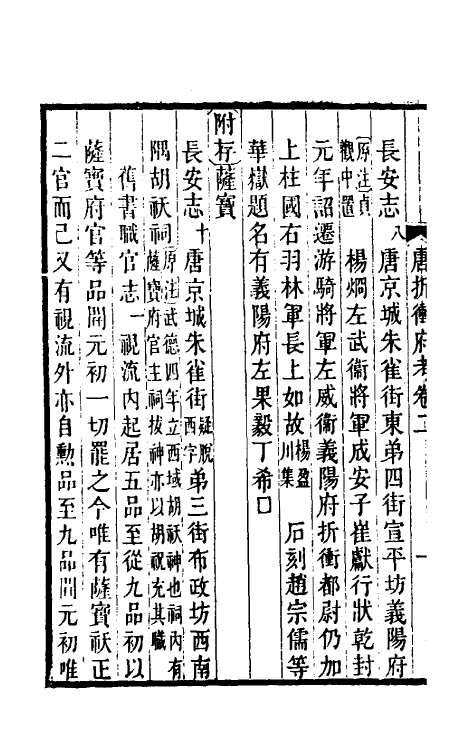 唐折衝府考卷二 一
長安志八唐京城朱雀街東弟四街宣平坊義陽府
原注貞觀中置 楊烱左武衞將軍成安子崔獻行狀乾封
元年詔遷游騎將軍左威衞義陽府折衝都尉仍加
上柱國右羽林軍長上如故楊盈川集 石刻趙宗儒等
華嶽題名有義陽府左果毅丁希口
附存薩寶
長安志十唐京城朱雀街疑脫西字弟三街布政坊西南
隅胡祆祠原注武德四年立西域胡祆神也祠內有薩寶府官主祠拔神亦以胡祝充其職
舊書職官志一視流內起居五品至從九品初以
薩寶府官等品開元初一切罷之今唯有薩寶祆正
二官而已又有視流外亦自勲品至九品開元初唯